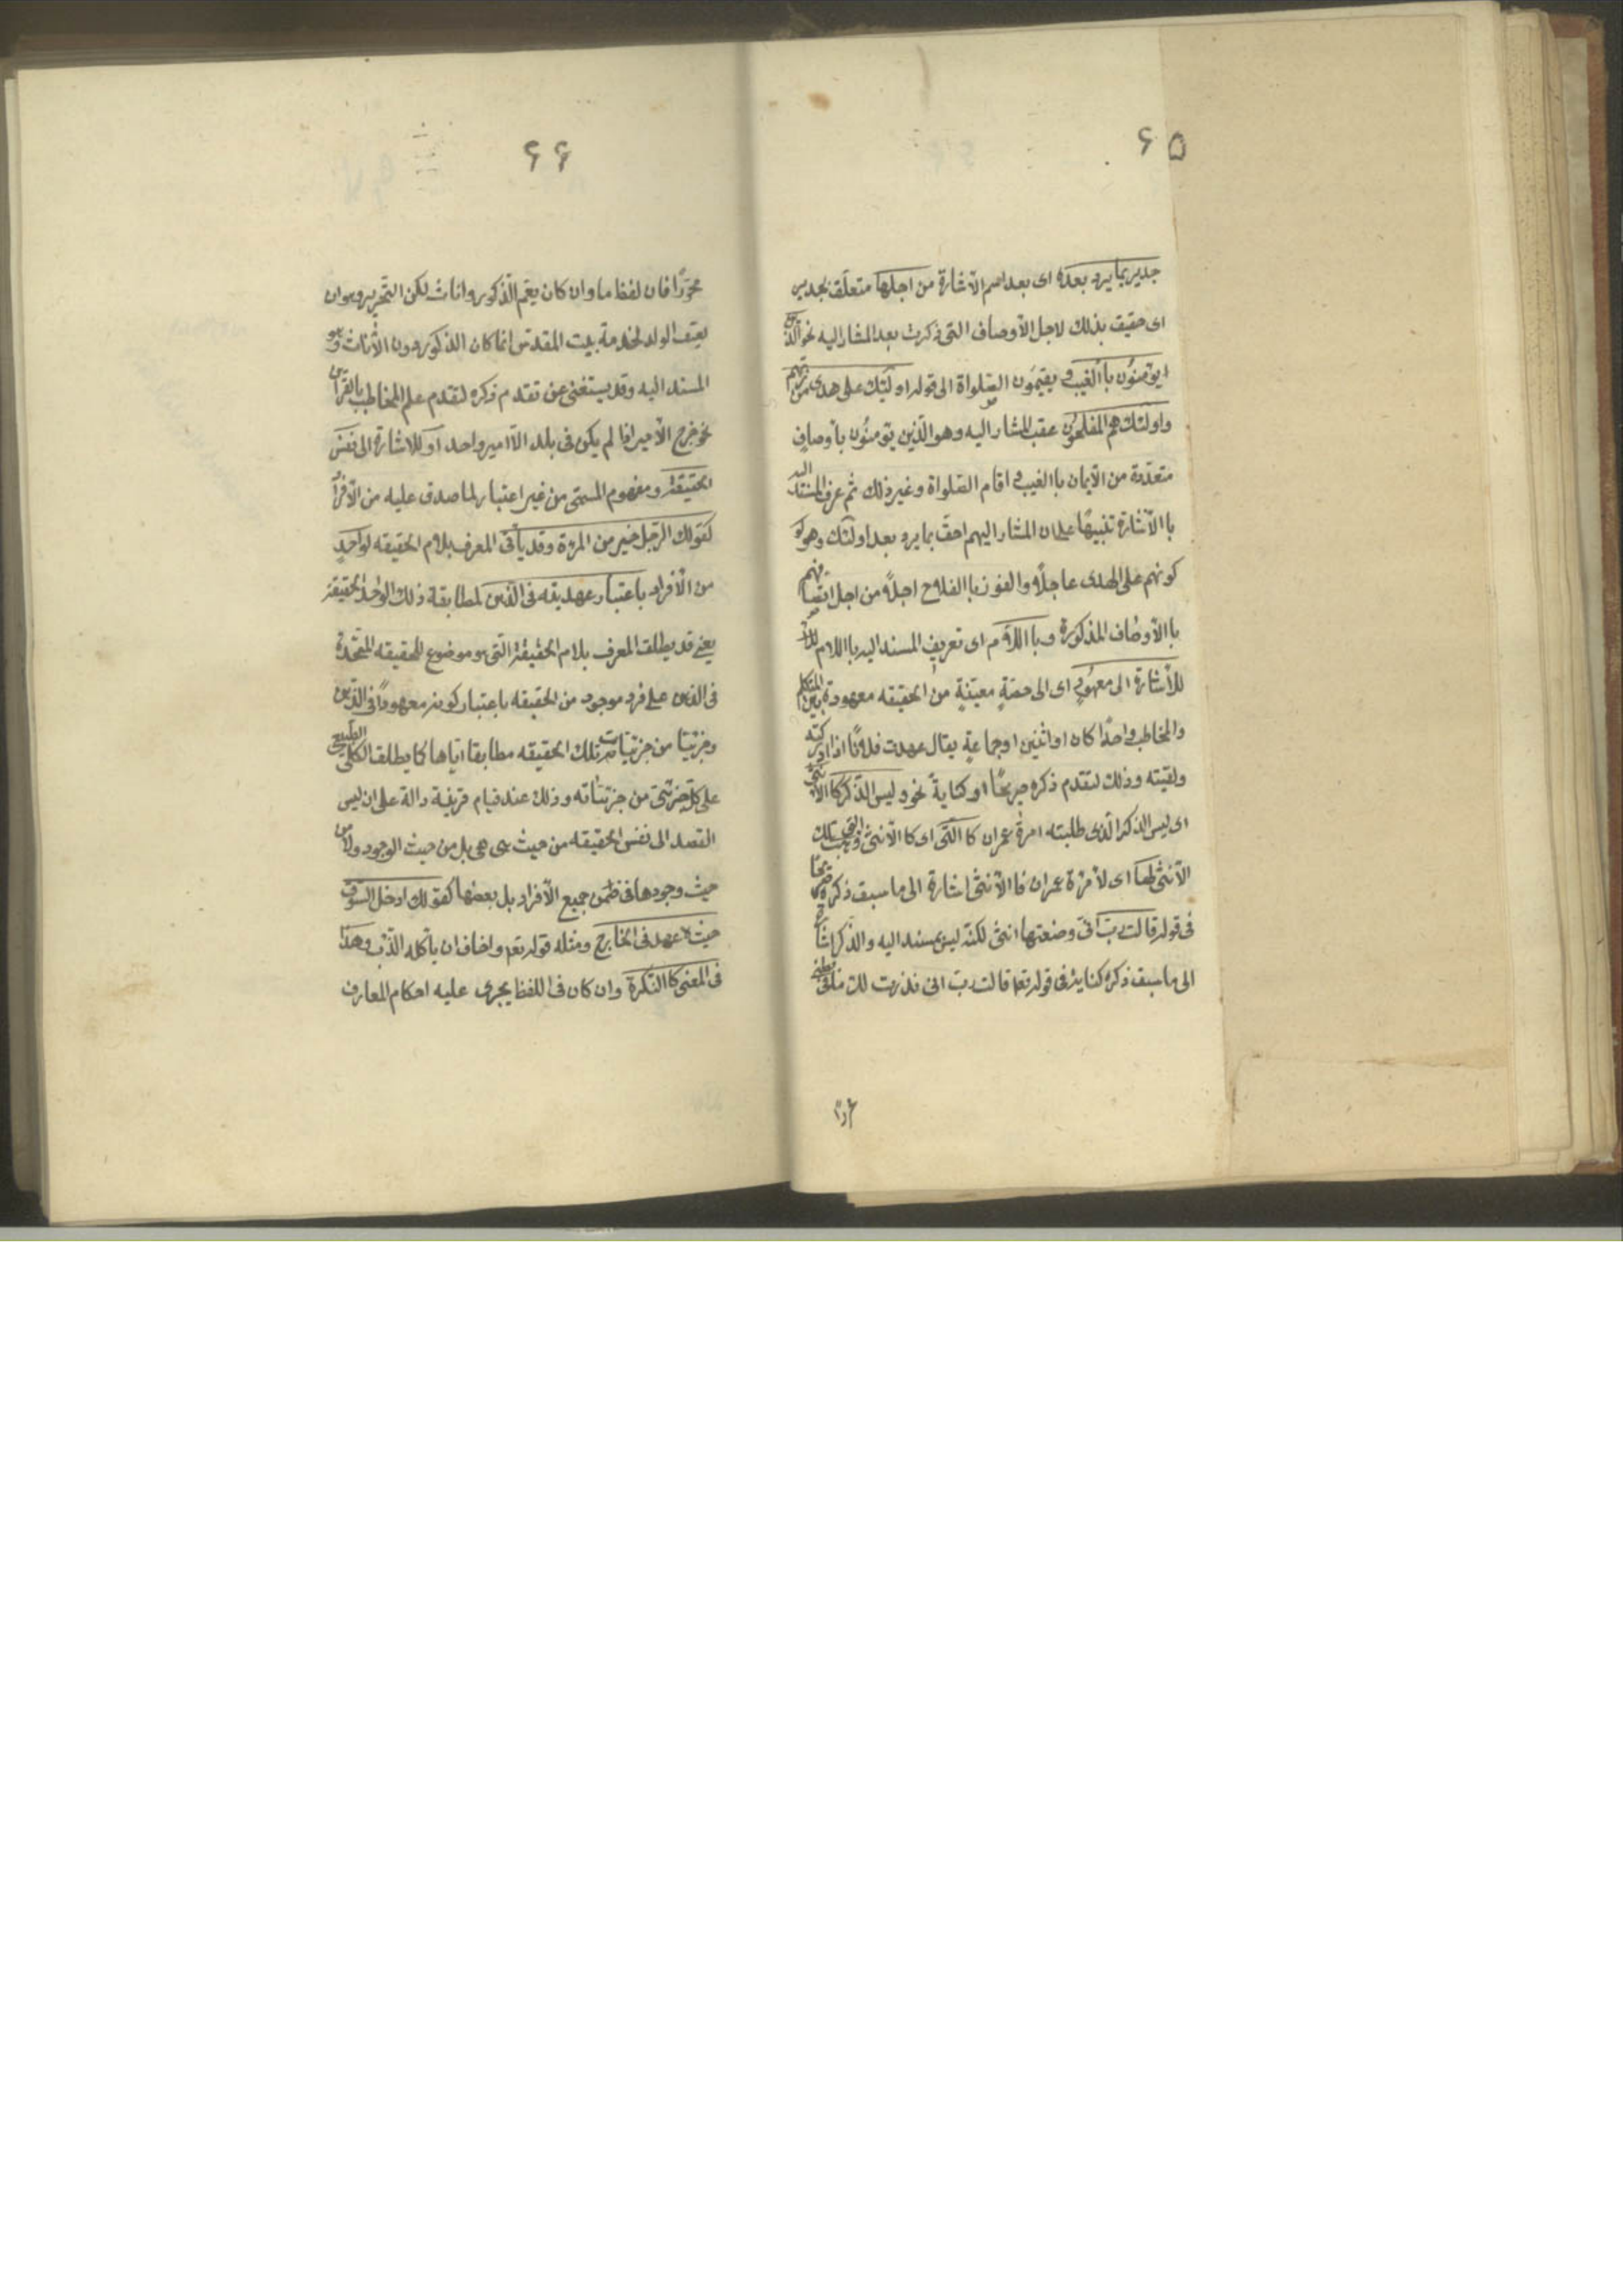 ۶۵
جدير بما يرد بعده اى بعد اسم الأشارة من اجلها متعلّق بجدير
اى حقيق بذلك لاجل الأوصاف التى ذكرت بعد المشار اليه نحو الّذين
يؤمنون باالغيب و يقيمون الصّلواة الى قوله اولئك على هدى من ربّهم
و اولئك هم المفلحون عقب المشار اليه وهو الّذين يؤمنون بأوصاف
متعدّدة من الأيمان باالغيب و اقام الصّلواة وغير ذلك ثم عرف المسند اليه
باالأشارة تنبيهًا على ان المشار اليهم احقّ بما يرد بعد اولئك وهو
كونهم على الهدى عاجلًا والفوز باالفلاح اجلًا من اجل اتصافهم
باالأوصاف المذكورة و باللّام اى تعريف المسند اليه باللام
للأشارة الى معهود اى الى حصّةٍ معيّنةٍ من الحقيقه معهودة بين المتكلم
والمخاطب واحدًا كان او اثنين او جماعةٍ يقال عهدت فلانًا اذا ادركته
ولقيته وذلك لتقدم ذكره صريحًا او كنايةً نحو وليس الذّكر كاالأنثى
اى ليس الذكر الّذى طلبته امرة عمران كاالّتى اى كاالأنثى الّتى وهبت تلك
الأنثى لها اى لأمرة عمران فاالأنثى اشارة الى ما سبق ذكره صريحًا
فى قوله قالت ربّ انّى وضعتها انثى لكنّه ليس بمسند اليه والذّكر اشارة
الى ما سبق ذكره كناية فى قوله تعه قالت ربّ انى نذرت لك ما فى بطنى
محرّرًا
۶۶
محرّرًا فان لفظ ما وان كان يعمّ الذّكور و اناث لكن التّحرير وهو ان
يعتق الولد لخدمة بيت المقدس انما كان الذكور دون الأناث وهو
المسند اليه وقد يستغنى عن تقدم ذكره لتقدم علم المخاطب بالقرآئن
نحو خرج الأمير اذا لم يكن فى بلد الّا امير واحد او للاشارة الى نفس
الحقيقة ومفهوم المسمّى من غير اعتبار لما صدق عليه من الأفراد
كقولك الرّجل خير من المرئة وقد يأتى المعرف بلام الحقيقه لواحدٍ
من الأفراد باعتبار عهديته فى الذّهن لمطابقة ذلك الواحد الحقيقة
يعنى قد يطلق المعرف بلام الحقيقة الّتى هو موضوع للحقيقه المتّحدة
فى الذهن على فرد موجود من الحقيقه باعتبار كونه معهودًا فى الذّهن
وجزئيّا من جزئيّات تلك الحقيقه مطابقا ايّاها كما يطلق الكلّى الطّبيعى
على كلّ جزئىّ من جزئيّاته وذلك عند قيام قرينة دالة على ان ليس
القصد الى نفس الحقيقه من حيث هى هى بل من حيث الوجود ولا من
حيث وجودها فى ضمن جميع الأفراد بل بعضها كقولك ادخل السّوق
حيث لا عهد فى الخارج ومثله قوله تعه واخاف ان يأكله الذّئب وهذا
فى المعنى كاالنّكرة وان كان فى اللفظ يجرى عليه احكام المعارف